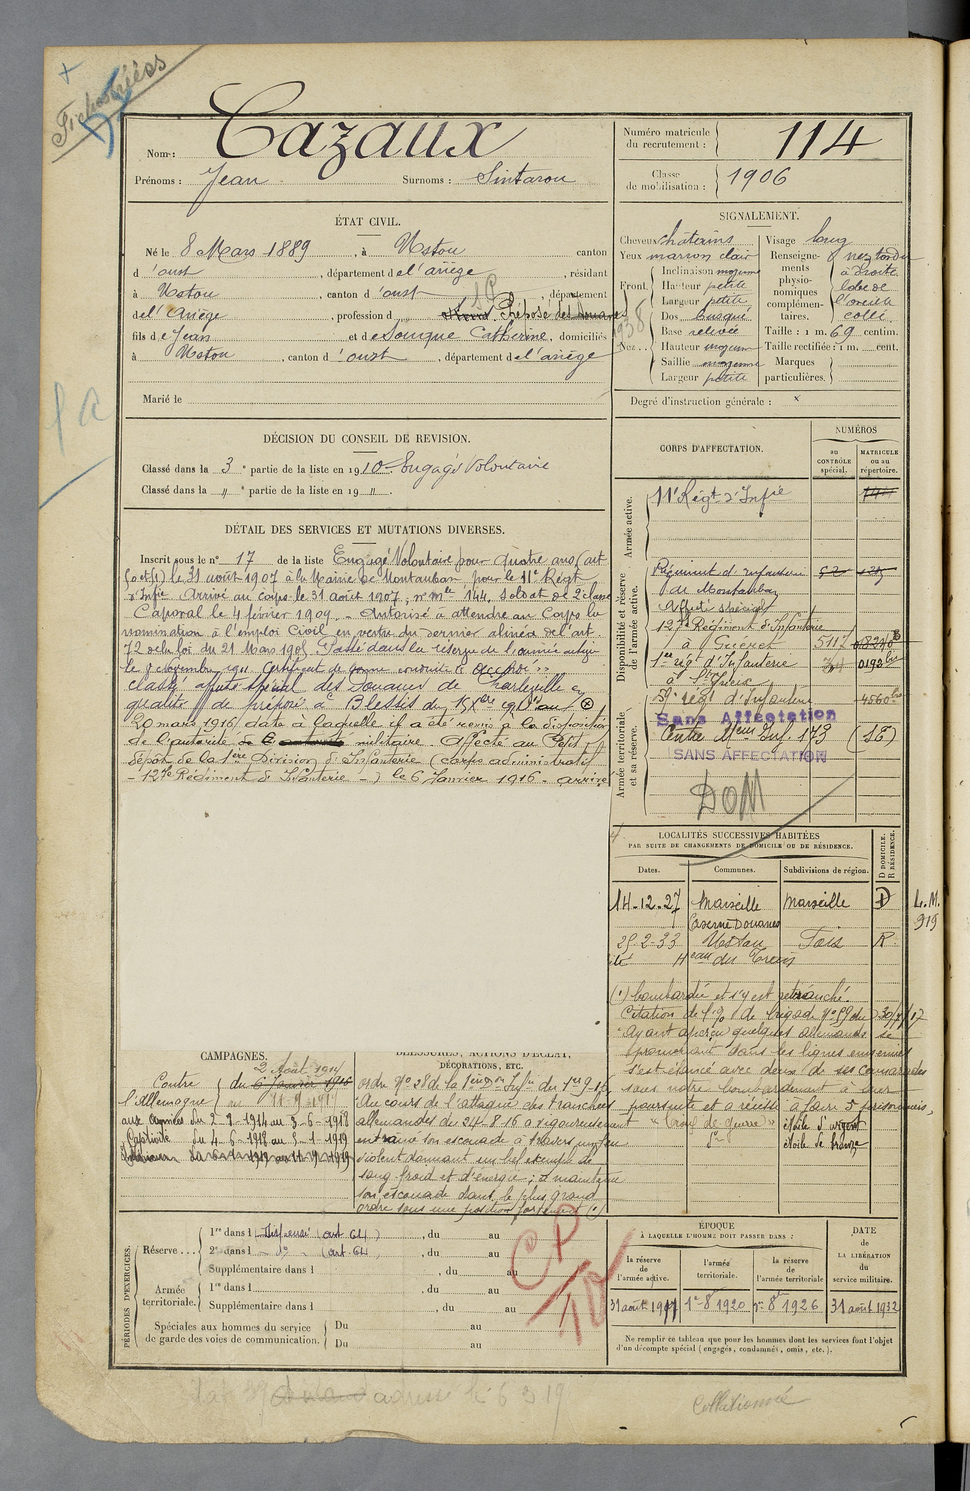 Fichotées
Nom : Cazaux
Prénoms : Jean Surnoms : Sintarou
Numéro matricule du recrutement : 114
Classe de mobilisation : 1906
ÉTAT CIVIL.
Né le 8 Mars 1889, à Ustou canton
d'oust, département de l'ariège, résidant
à Ustou, canton d'oust, département
de l'Ariège, profession d Préposé des Douanes
fils de Jean et de Souque Catherine, domiciliés
à Ustou, canton d'oust, département de l'ariège
Marié le
SIGNALEMENT.
Cheveux châtains
Yeux marron clair
Front. Inclinaison moyenne
Hauteur petite
Largeur petite
Nez. Dos busqué
Base relevée
Hauteur moyenne
Saillie moyenne
Largeur petite
Visage long
Renseignements physionomiques complémentaires. nez tordu à droite lobe de l'oreille collé.
Taille : 1 m. 69 centim.
Taille rectifiée : 1 m. cent.
Marques particulières.
Degré d'instruction générale : x
DÉCISION DU CONSEIL DE REVISION.
Classé dans la 3e partie de la liste en 1910. Engagé Volontaire
Classé dans la " e partie de la liste en 19 "
DÉTAIL DES SERVICES ET MUTATIONS DIVERSES.
Inscrit sous le n° 17 de la liste Engagé Volontaire pour quatre ans (art
50 et 51) le 31 août 1907 à la Mairie de Montauban, pour le 11e Régt
d'Infie. Arrivé au corps le 31 août 1907, n° mle 144, soldat de 2e classe
Caporal le 4 février 1909. - Autorisé à attendre au Corps la
nomination à l'emploi Civil en vertu du dernier alinéa de l'art.
72 de la loi du 21 Mars 1905. Passé dans la réserve de l'armée active
le 9 novembre 1911. Certificat de bonne conduite "accordé"
Classé affecté spécial des Douanes de Charleville en
qualité de préposé
20 mars 1916, date à laquelle il a été remis à la disposition
de l'autorité militaire. Affecté au Petit
dépôt de la 1ère Division d'Infanterie (corps administratif
- 127e Régiment d'Infanterie -) le 6 Janvier 1916 - arrivé
CORPS D'AFFECTATION.
NUMÉROS
au CONTRÔLE spécial.
MATRICULE ou au répertoire.
Armée active.
11e Régt d'Infie
Disponibilité et réserve de l'armée active.
Régiment d'infanterie
de Montauban
Affecté spécial
127e Régiment d'Infanterie
à Guéret 5117
1er régt d'Infanterie
59e régt d'Infanterie
Armée territoriale et sa réserve.
Sans Affectation
Centre Mour Inf. 173
SANS AFFECTATION
DOM
LOCALITÉS SUCCESSIVES HABITÉES
PAR SUITE DE CHANGEMENTS DE DOMICILE OU DE RÉSIDENCE.
Dates. Communes. Subdivisions de région. D DOMICILE. R RÉSIDENCE.
14-12-27 Marseille Marseille D
Caserne Douanes
L.M. 919
25-2-33 Ustou Foix R.
Heau du Trein
(1) bombardée et s'y est retranché.
Citation à l'o/ de brigade n° 59 du 30/7/17
"Ayant aperçu quelques allemands se
promenant dans les lignes ennemies
s'est élancé avec deux de ses camarades
sous notre bombardement à leur
poursuite et a réussi à faire 5 prisonniers,
"Croix de guerre" étoile d'argent
étoile de bronze
CAMPAGNES.
Contre l'Allemagne
du 2 Août 1914
au 11-9-1919
aux armées du 2-9-1914 au 3-6-1918
Captivité du 4-6-1918 au 5-1-1919
BLESSURES, ACTIONS D'ÉCLAT, DÉCORATIONS, ETC.
"Au cours de l'attaque des tranchées
allemandes du 24-8-16 a vigoureusement
entraîné son escouade à travers un feu
violent donnant un bel exemple de
sang-froid et d'énergie ; a maintenu
son escouade dans le plus grand
ordre sous une position fortement (1)
PÉRIODES D'EXERCICES.
Réserve... 1re dans l Dispensé (art 64), du au
2e dans l - do - (art. 64), du au
Supplémentaire dans l, du au
Armée territoriale. 1re dans l, du au
Supplémentaire dans l, du au
Spéciales aux hommes du service de garde des voies de communication. Du au
Du au
CP
10
ÉPOQUE
À LAQUELLE L'HOMME DOIT PASSER DANS :
la réserve de l'armée active. l'armée territoriale. la réserve de l'armée territoriale
DATE de LA LIBÉRATION du service militaire.
31 août 1907 1er 8bre 1920 1er 8bre 1926 31 août 1932
Ne remplir ce tableau que pour les hommes dont les services font l'objet
d'un décompte spécial (engagés, condamnés, omis, etc.).
adresse le 6 3 19
Collationné